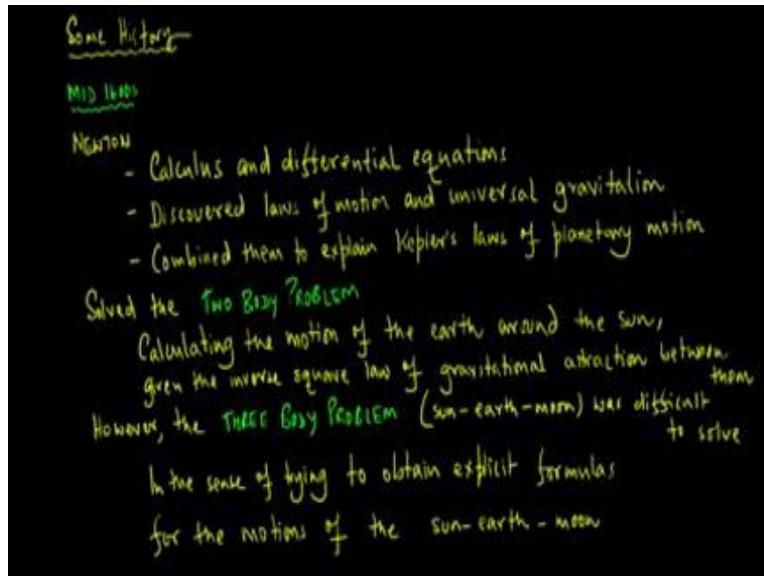 Some History
MID 1600s
NEWTON
- Calculus and differential equations
- Discovered laws of motion and universal gravitation
- Combined them to explain Kepler's laws of planetary motion
Solved the TWO BODY PROBLEM
Calculating the motion of the earth around the sun,
given the inverse square law of gravitational attraction between them
However, the THREE BODY PROBLEM (sun-earth-moon) was difficult to solve
In the sense of trying to obtain explicit formulas
for the motions of the sun-earth-moon